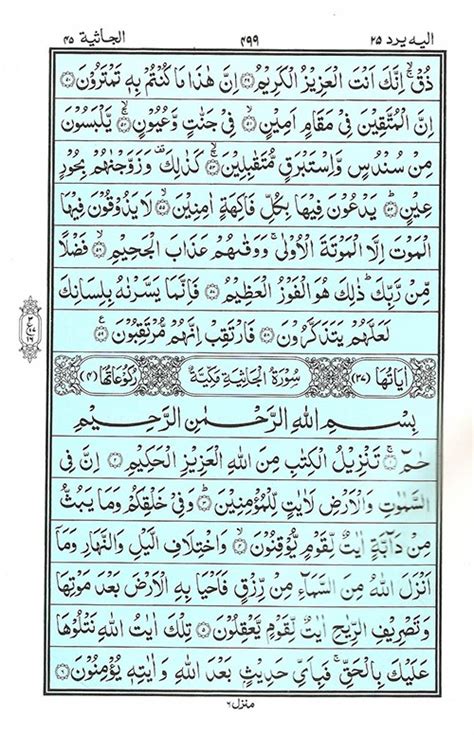 اليه يرد ٢٥ ٤٩٩ الجاثية ٤٥
ذُقْ ۙۚ اِنَّكَ اَنْتَ الْعَزِيْزُ الْكَرِيْمُ ۝ اِنَّ هٰذَا مَا كُنْتُمْ بِهٖ تَمْتَرُوْنَ ۝
اِنَّ الْمُتَّقِيْنَ فِيْ مَقَامٍ اَمِيْنٍ ۝ فِيْ جَنّٰتٍ وَّعُيُوْنٍ ۝ يَّلْبَسُوْنَ
مِنْ سُنْدُسٍ وَّاِسْتَبْرَقٍ مُّتَقٰبِلِيْنَ ۝ كَذٰلِكَ وَزَوَّجْنٰهُمْ بِحُوْرٍ
عِيْنٍ ۝ يَدْعُوْنَ فِيْهَا بِكُلِّ فَاكِهَةٍ اٰمِنِيْنَ ۝ لَا يَذُوْقُوْنَ فِيْهَا
الْمَوْتَ اِلَّا الْمَوْتَةَ الْاُوْلٰى ۚ وَوَقٰىهُمْ عَذَابَ الْجَحِيْمِ ۝ فَضْلًا
مِّنْ رَّبِّكَ ؕ ذٰلِكَ هُوَ الْفَوْزُ الْعَظِيْمُ ۝ فَاِنَّمَا يَسَّرْنٰهُ بِلِسَانِكَ
لَعَلَّهُمْ يَتَذَكَّرُوْنَ ۝ فَارْتَقِبْ اِنَّهُمْ مُّرْتَقِبُوْنَ ۝
اٰيَاتُهَا (٣٧) سُوْرَةُ الْجَاثِيَةِ مَكِّيَّةٌ رُكُوْعَاتُهَا (٤)
بِسْمِ اللّٰهِ الرَّحْمٰنِ الرَّحِيْمِ
حٰمٓ ۝ تَنْزِيْلُ الْكِتٰبِ مِنَ اللّٰهِ الْعَزِيْزِ الْحَكِيْمِ ۝ اِنَّ فِي
السَّمٰوٰتِ وَالْاَرْضِ لَاٰيٰتٍ لِّلْمُؤْمِنِيْنَ ۝ وَفِيْ خَلْقِكُمْ وَمَا يَبُثُّ
مِنْ دَآبَّةٍ اٰيٰتٌ لِّقَوْمٍ يُّوْقِنُوْنَ ۝ وَاخْتِلَافِ الَّيْلِ وَالنَّهَارِ وَمَا
اَنْزَلَ اللّٰهُ مِنَ السَّمَآءِ مِنْ رِّزْقٍ فَاَحْيَا بِهِ الْاَرْضَ بَعْدَ مَوْتِهَا
وَتَصْرِيْفِ الرِّيٰحِ اٰيٰتٌ لِّقَوْمٍ يَّعْقِلُوْنَ ۝ تِلْكَ اٰيٰتُ اللّٰهِ نَتْلُوْهَا
عَلَيْكَ بِالْحَقِّ ۚ فَبِاَيِّ حَدِيْثٍۭ بَعْدَ اللّٰهِ وَاٰيٰتِهٖ يُؤْمِنُوْنَ ۝
منزل ٦